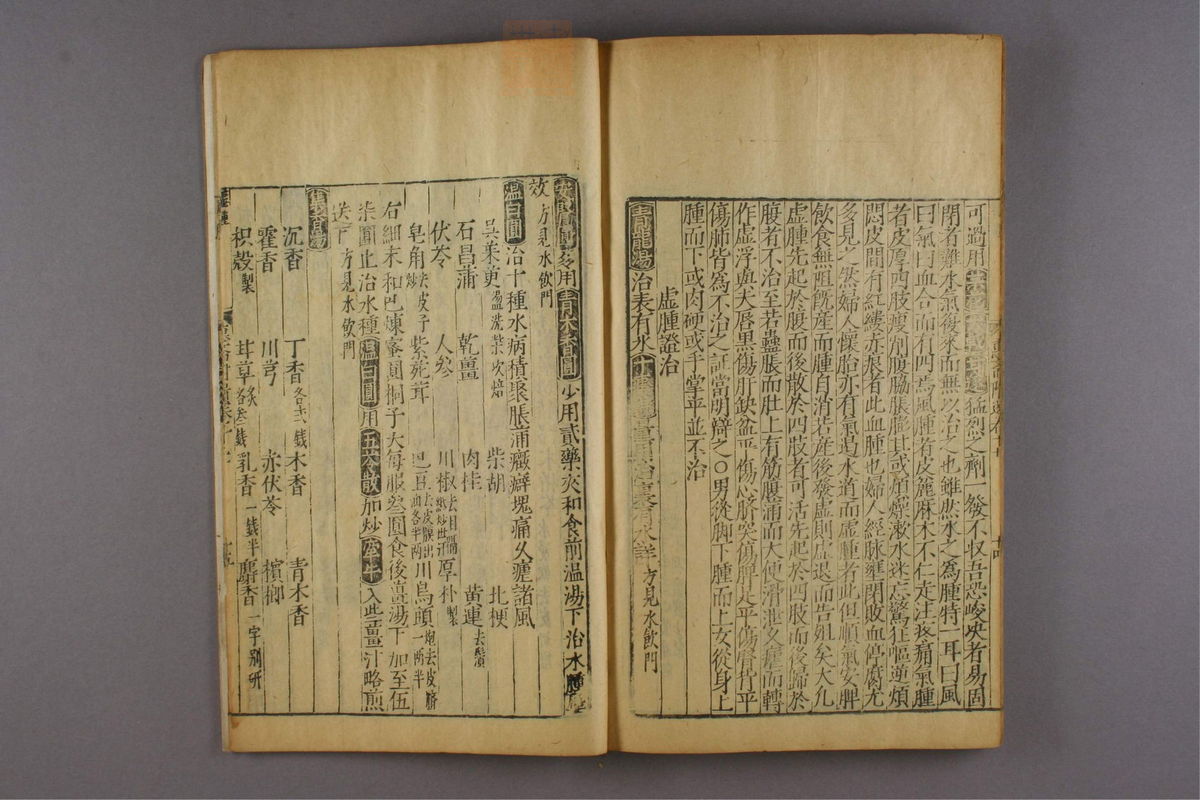 可過用 猛烈之劑一發不收吾恐峻決者易固
閉者難水氣後來而無以治之也雖然水之為腫特一耳曰風
曰氣曰血合而有四焉風腫者皮麄麻木不仁走注疼痛氣腫
者皮厚四肢瘦削腹脇脹膨其或煩燥漱水迷忘驚狂嘔逆煩
悶皮間有紅縷赤痕者此血腫也婦人經脉壅閉敗血停腐尤
多見之然婦人懷胎亦有氣遏水道而虛腫者此但順氣安脾
飲食無阻既產而腫自消若產後發虛則旋退而告徂矣大凡
虛腫先起於腹而後散於四肢者可活先起於四肢而後歸於
腹者不治至若蠱脹而肚上有筋腹滿而大便滑泄久瘧而轉
作虛浮與夫唇黑傷肝缺盆平傷心臍突傷脾足平傷腎背平
傷肺皆為不治之証當明辯之〇男從脚下腫而上女從身上
腫而下或肉硬或手掌平並不治
虛腫證治
青龍湯 治表有水 方見水飲門
多用青木香圓少用貳藥夾和食前溫湯下治水腫
效 方見水飲門
溫白圓 治十種水病積聚脹滿癥癖塊痛久瘧諸風
吳茱萸 湯洗柒次焙 柴胡 北梗
石昌蒲 乾薑 肉桂 黃連 去鬚
茯苓 人參 川椒 去目 厚朴 製
皂角 去皮子炒 紫菀茸 巴豆 去皮膜出油各半兩 川烏頭 炮去皮臍一兩半
右細末和巴煉蜜圓桐子大每服叁圓食後薑湯下加至伍
柒圓止治水種溫白圓用五苓散加炒牽牛入些薑汁略煎
送下 方見水飲門
集香湯
沉香 丁香 各弍錢 木香 青木香
霍香 川芎 赤伏苓 檳榔
枳殼 製 甘草 炙各叁錢 乳香 一錢半 麝香 一字別研